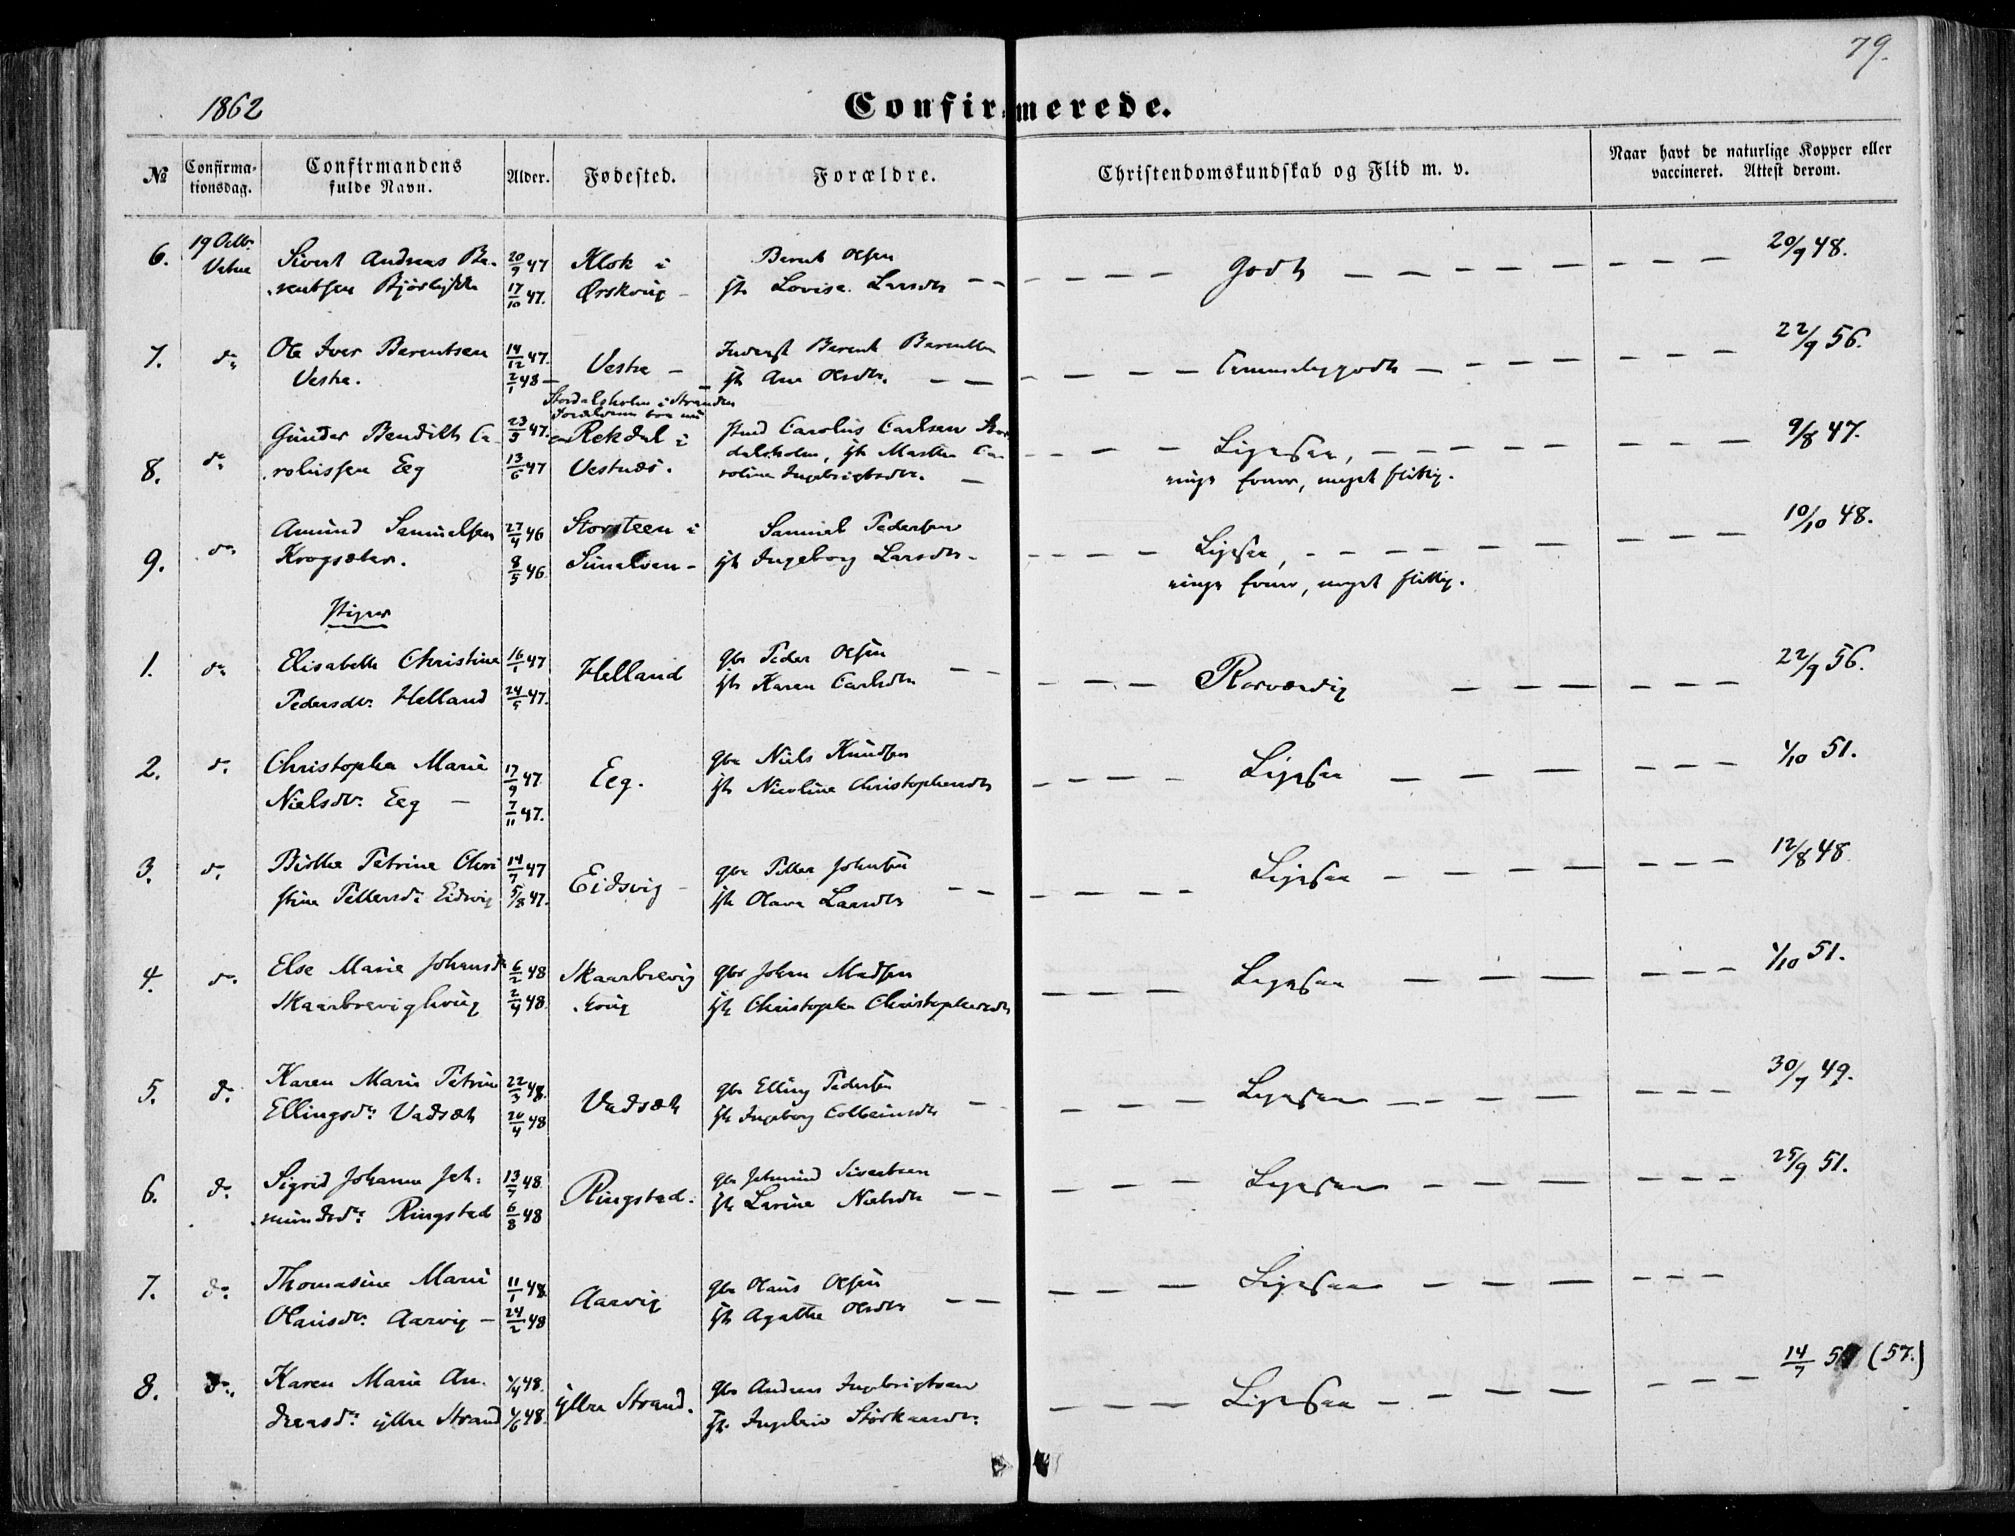 79.
1862
Confirmerede.
№ Confirma-tionsdag. Confirmandens fulde Navn. Alder. Fødested. Forældre. Christendomskundskab og Flid m. v. Naar havt de naturlige Kopper eller vaccineret. Attest derom.
6. 19 Octbr. Sivert Andreas Ba- 20/9 47 Klok i Barent Olsen Godt 20/9 48.
rentsen 17/10 47. Ørskoug Lovise Larsdr
7. do Ole Iver Barentsen 14/12 47. Vestre Barent Barentsen Temmelig godt 22/9 56.
Vestre. 2/1 48 Ane Olsdr.
Stordalsholm i Stranden
8. do Gunder Bendikt Ca- 23/3 47. Rekdal i Carolus Carlsen Stor- Ligesaa, 9/8 47.
rolussen Eeg 13/6 47 Vestnæs. dalsholm, Marthe Ca-
roline Ingebrigtsdr. ringe Evner, meget flittig.
9. do Amund Samuelsen 27/4 46 Storsteen i Samuel Pedersen Ligesaa, 10/10 48.
Krogsæter. 8/5 46 Sunelven Ingeborg Larsdr
ringe Evner, meget flittig.
Piger
1. do Elisabeth Christine 16/1 47 Helland Gbr Peder Olsen Rosværdig 22/9 56.
Pedersdr. Helland 24/5 47. Karen Carlsdr
2. do Christopha Marie 17/9 47 Eeg. Gbr Niels Knudsen Ligesaa 1/10 51.
Nielsdr. Eeg 7/11 47. Nicoline Christophersdr
3. do Birthe Petrine Chri 14/7 47 Eidsvig Gbr Petter Johnsen Ligesaa 12/8 48
stine Pettersdr Eidsvig 5/8 47. Olave Larsdr
4. do Else Marie Johansdr 6/2 48 Skaarbrevig Gbr John Madsen Ligesaa 1/10 51.
Skaarbrevighoug 2/4 48. houg Christopha Christophersdr
5. do Karen Marie Petrine 22/3 48. Vadsæt Gbr Elling Pedersen Ligesaa 30/7 49.
Ellingsdr Vadsæt 20/4 48 Ingeborg Colbeinsdr
6. do Sigrid Johanne Jet- 13/7 48 Ringstad. Gbr Jetmund Sivertsen Ligesaa 25/9 51.
mundsdr. Ringstad 6/8 48 Larine Nielsdr
7. do Thomasine Marie 11/1 48. Aarvig Gbr Olaus Olsen Ligesaa
Olausdr. Aarvig 24/2 48 Agathe Olsdr
8. do Karen Marie An- 1/4 48. Yttre Strand. Gbr Andreas Ingebrigtsen Ligesaa 14/7 57 (57.)
dreasdr. Yttre Strand 1/6 48.